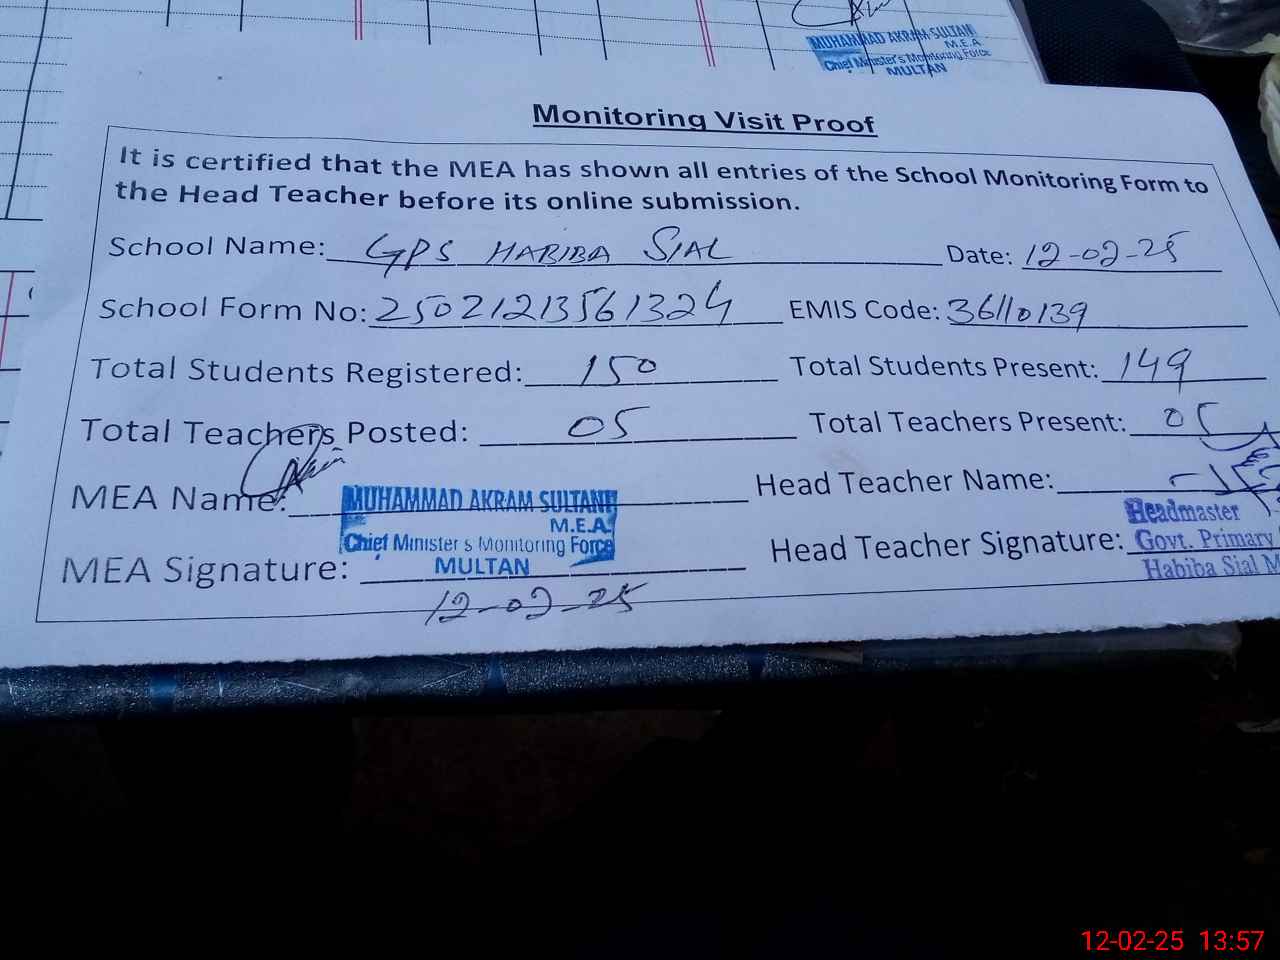 MUHAMMAD AKRAM SULTAN
M.E.A.
Chief Minister's Monitoring Force
MULTAN
Monitoring Visit Proof
It is certified that the MEA has shown all entries of the School Monitoring Form to
the Head Teacher before its online submission.
School Name: GPS HABIBA SIAL Date: 12-02-25
School Form No: 25021213561324 EMIS Code: 36110139
Total Students Registered: 150 Total Students Present: 149
Total Teachers Posted: 05 Total Teachers Present: 05
MEA Name: Head Teacher Name:
MUHAMMAD AKRAM SULTAN
M.E.A.
Chief Minister s Monitoring Force
MULTAN
Headmaster
Govt. Primary
Habiba Sial M
MEA Signature: Head Teacher Signature:
12-02-25
12-02-25 13:57